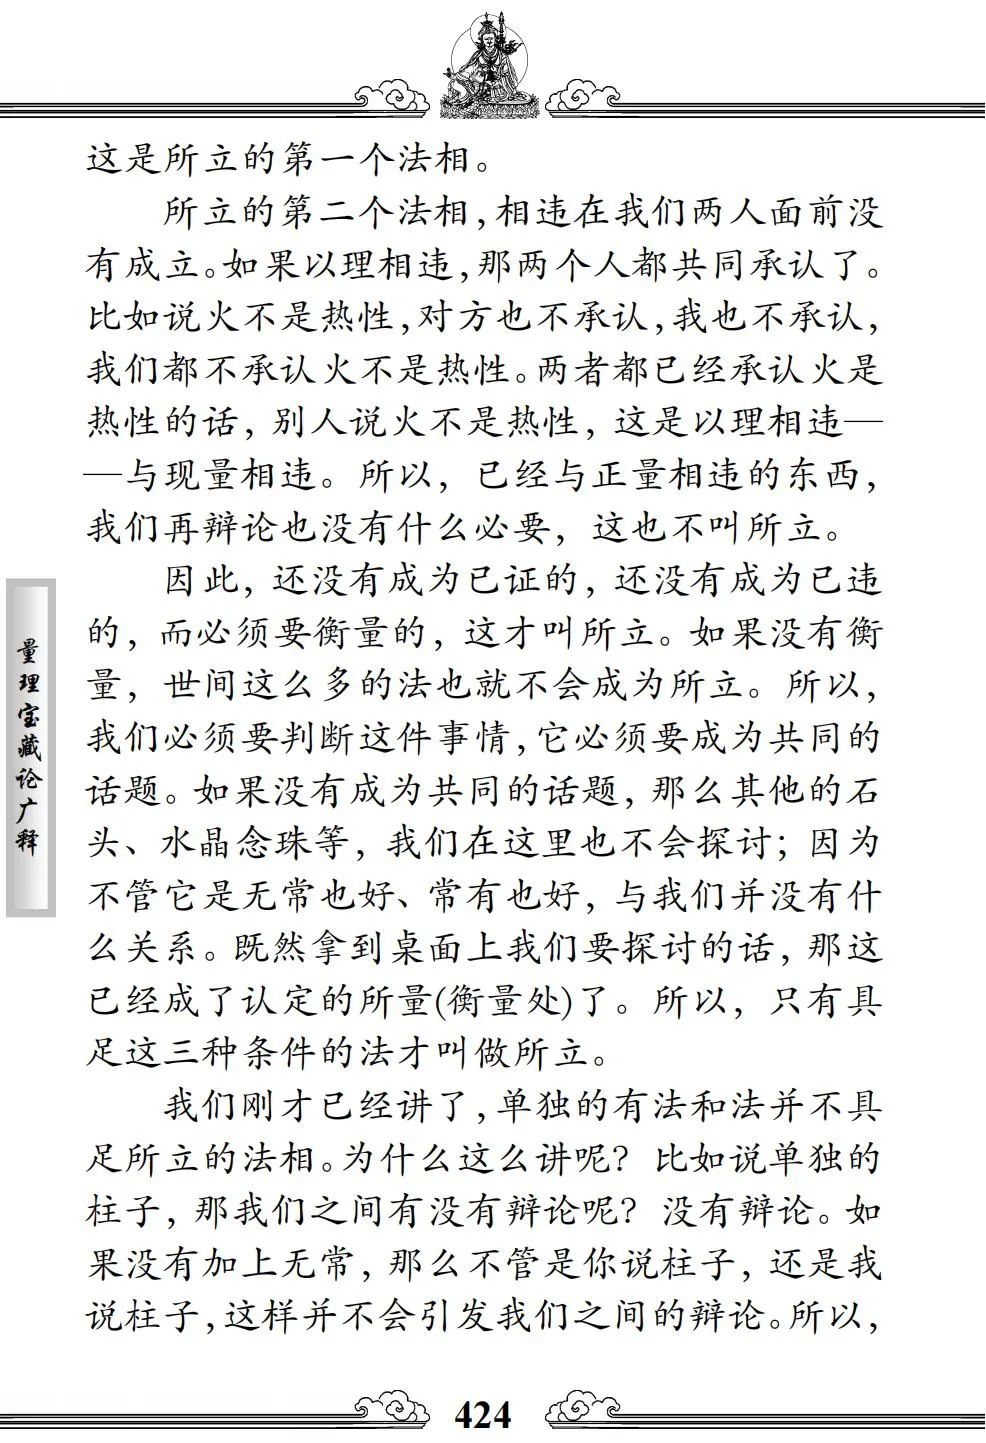 这是所立的第一个法相。
所立的第二个法相，相违在我们两人面前没
有成立。如果以理相违，那两个人都共同承认了。
比如说火不是热性，对方也不承认，我也不承认，
我们都不承认火不是热性。两者都已经承认火是
热性的话，别人说火不是热性，这是以理相违—
—与现量相违。所以，已经与正量相违的东西，
我们再辩论也没有什么必要，这也不叫所立。
因此，还没有成为已证的，还没有成为已违
的，而必须要衡量的，这才叫所立。如果没有衡
量，世间这么多的法也就不会成为所立。所以，
我们必须要判断这件事情，它必须要成为共同的
话题。如果没有成为共同的话题，那么其他的石
头、水晶念珠等，我们在这里也不会探讨；因为
不管它是无常也好、常有也好，与我们并没有什
么关系。既然拿到桌面上我们要探讨的话，那这
已经成了认定的所量(衡量处)了。所以，只有具
足这三种条件的法才叫做所立。
我们刚才已经讲了，单独的有法和法并不具
足所立的法相。为什么这么讲呢？比如说单独的
柱子，那我们之间有没有辩论呢？没有辩论。如
果没有加上无常，那么不管是你说柱子，还是我
说柱子，这样并不会引发我们之间的辩论。所以，
量理宝藏论广释
424